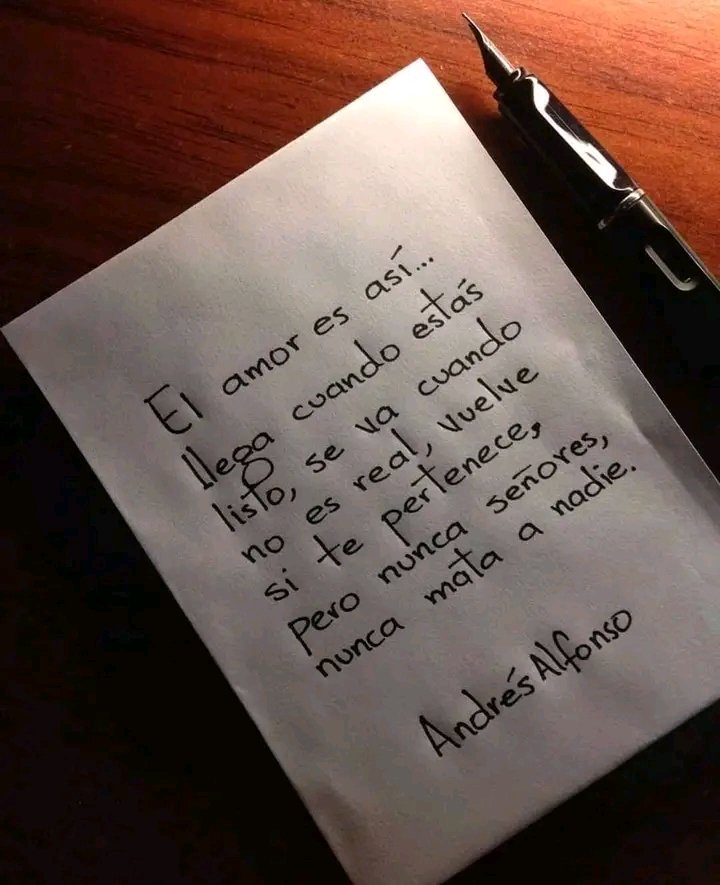 El amor es así...
llega cuando estás
listo, se va cuando
no es real, vuelve
si te pertenece,
Pero nunca señores,
nunca mata a nadie.
Andrés Alfonso